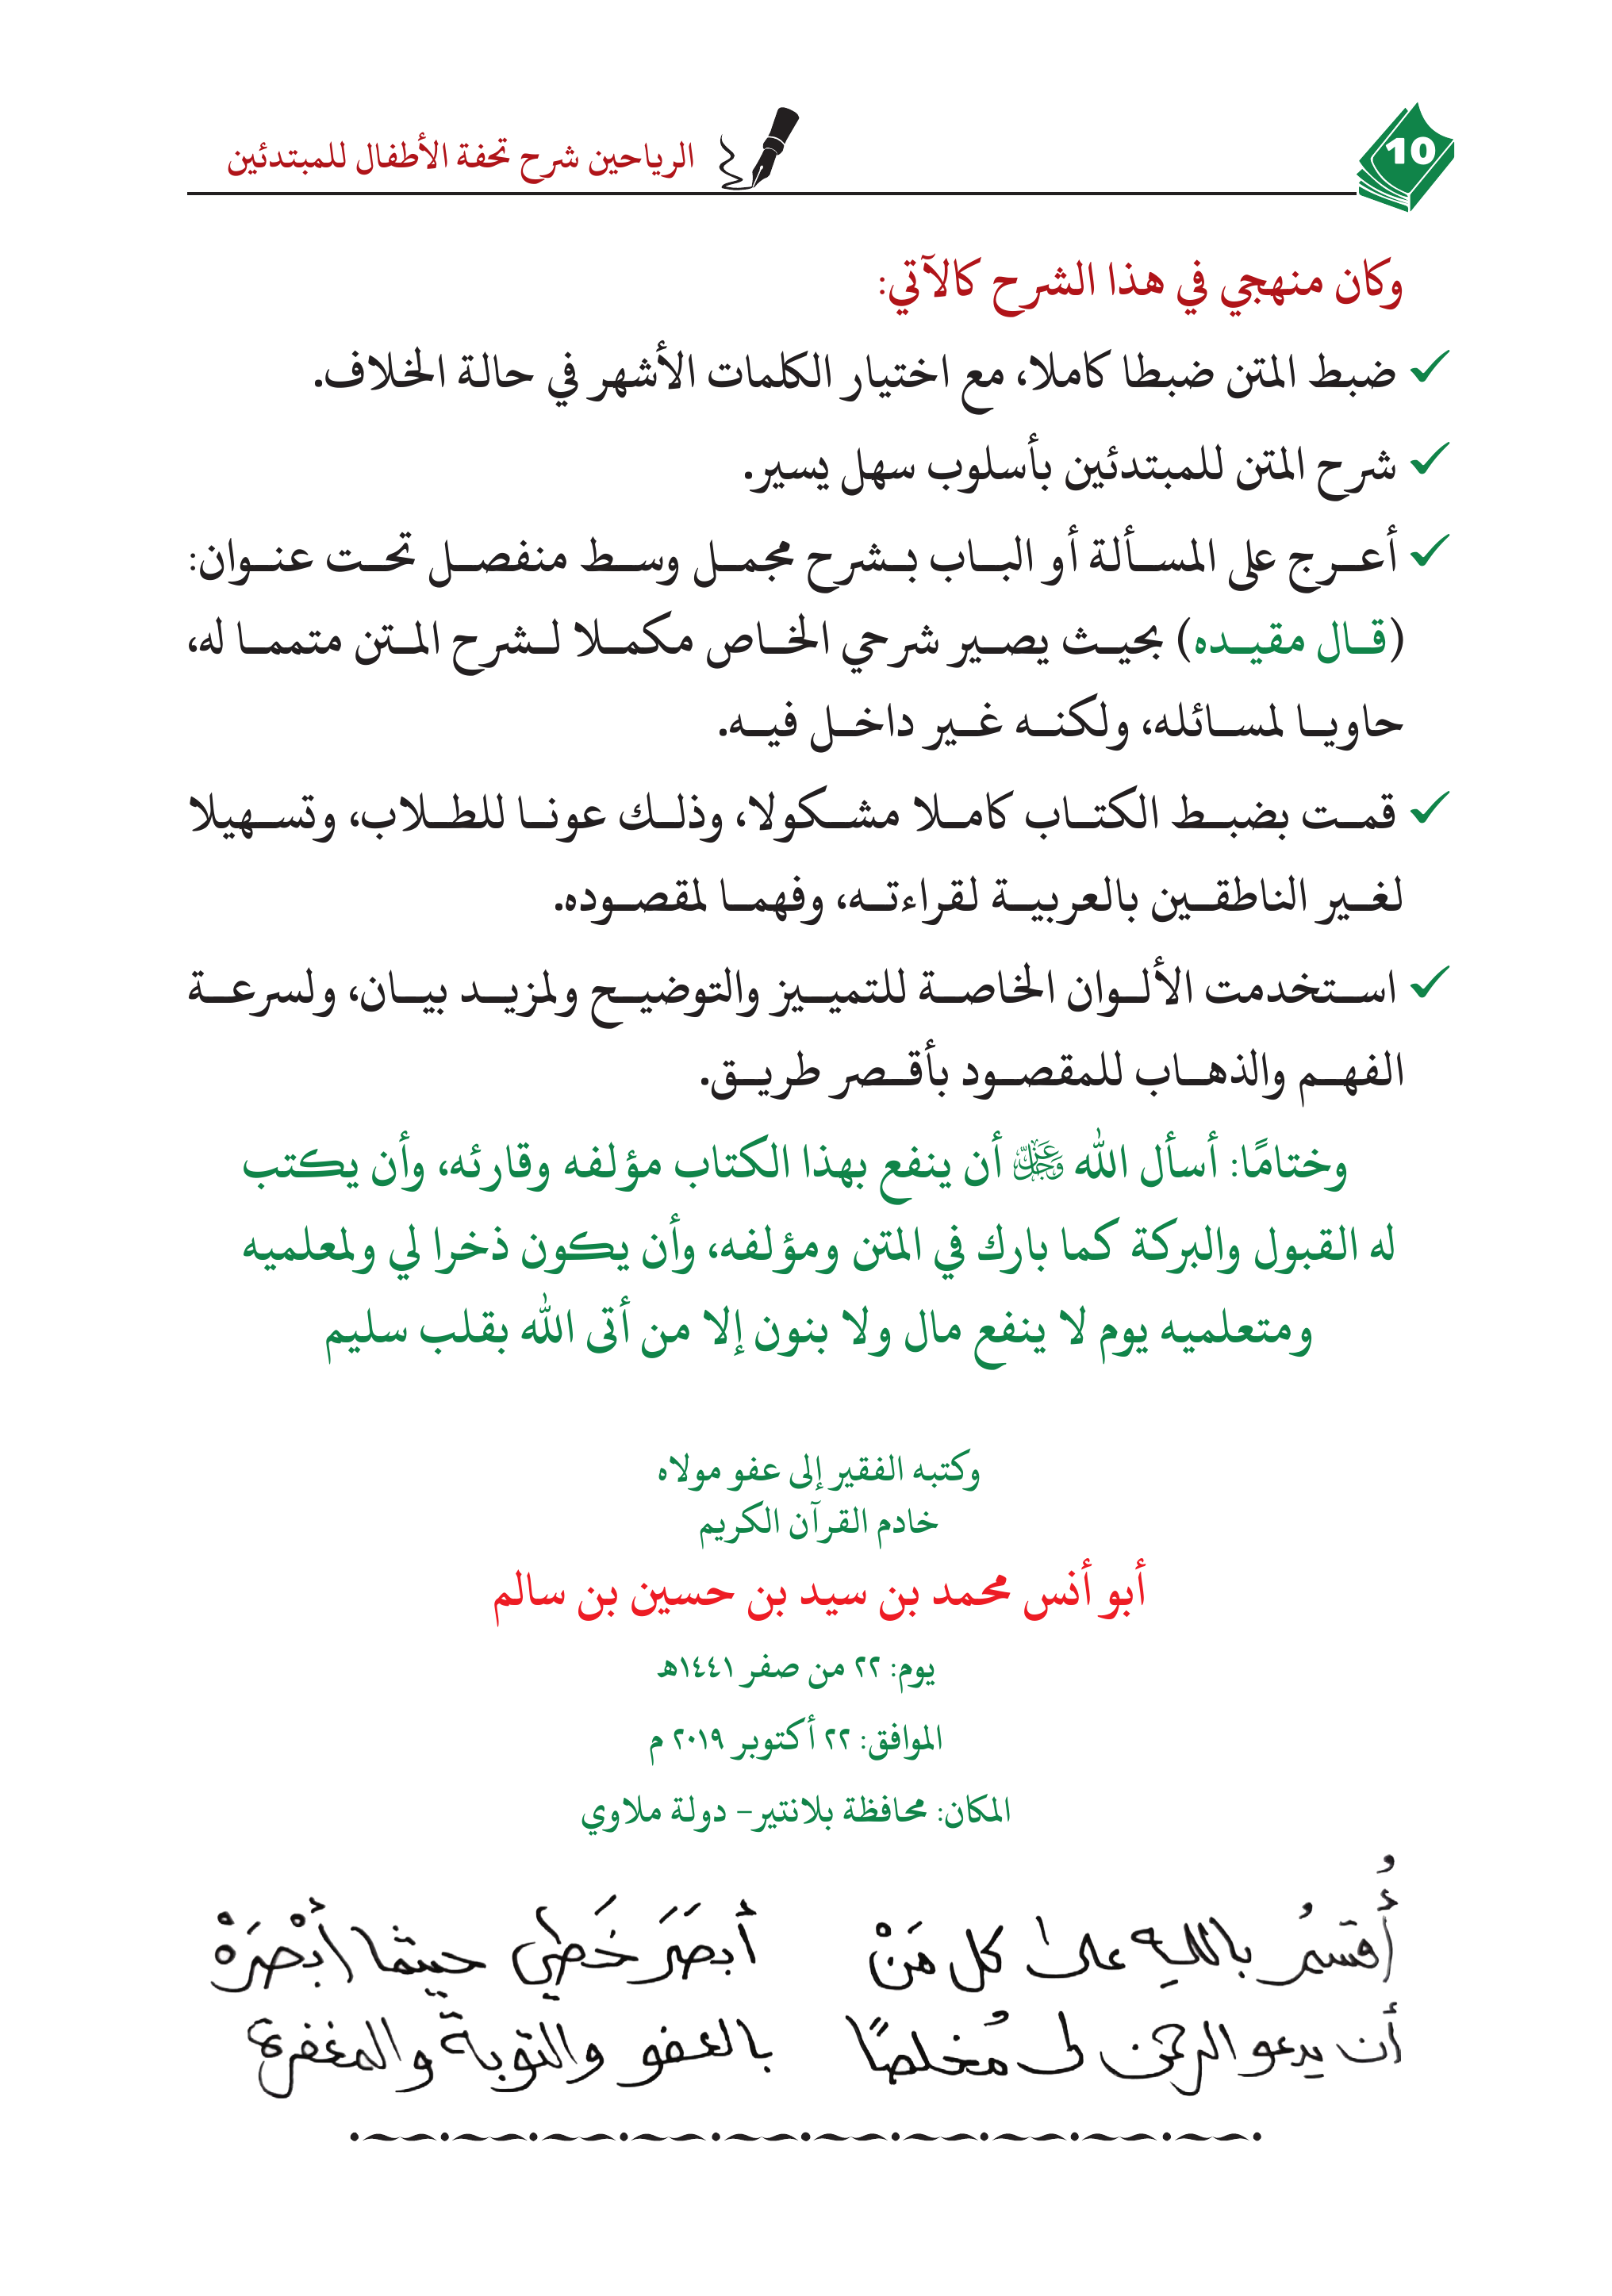 10
الرياحين شرح تحفة الأطفال للمبتدئين
وكان منهجي في هذا الشرح كالآتي:
ضبط المتن ضبطا كاملا، مع اختيار الكلمات الأشهر في حالة الخلاف.
شرح المتن للمبتدئين بأسلوب سهل يسير.
أعرج على المسألة أو الباب بشرح مجمل وسط منفصل تحت عنوان:
(قال مقيده) بحيث يصير شرحي الخاص مكملا لشرح المتن متمما له،
حاويا لمسائله، ولكنه غير داخل فيه.
قمت بضبط الكتاب كاملا مشكولا، وذلك عونا للطلاب، وتسهيلا
لغير الناطقين بالعربية لقراءته، وفهما لمقصوده.
استخدمت الألوان الخاصة للتمييز والتوضيح ولمزيد بيان، ولسرعة
الفهم والذهاب للمقصود بأقصر طريق.
وختامًا: أسأل الله عَزَّ وَجَلَّ أن ينفع بهذا الكتاب مؤلفه وقارئه، وأن يكتب
له القبول والبركة كما بارك في المتن ومؤلفه، وأن يكون ذخرا لي ولمعلميه
ومتعلميه يوم لا ينفع مال ولا بنون إلا من أتى الله بقلب سليم
وكتبه الفقير إلى عفو مولاه
خادم القرآن الكريم
أبو أنس محمد بن سيد بن حسين بن سالم
يوم: ٢٢ من صفر ١٤٤١هـ
الموافق: ٢٢ أكتوبر ٢٠١٩ م
المكان: محافظة بلانتير- دولة ملاوي
أُقسمُ باللهِ على كل مَنْ أَبصَرَ خَطي حيثما أبْصَرَهْ
أن يدعو الرحمن لي مُخلصًا بالعفو والتوبة والمغفرة